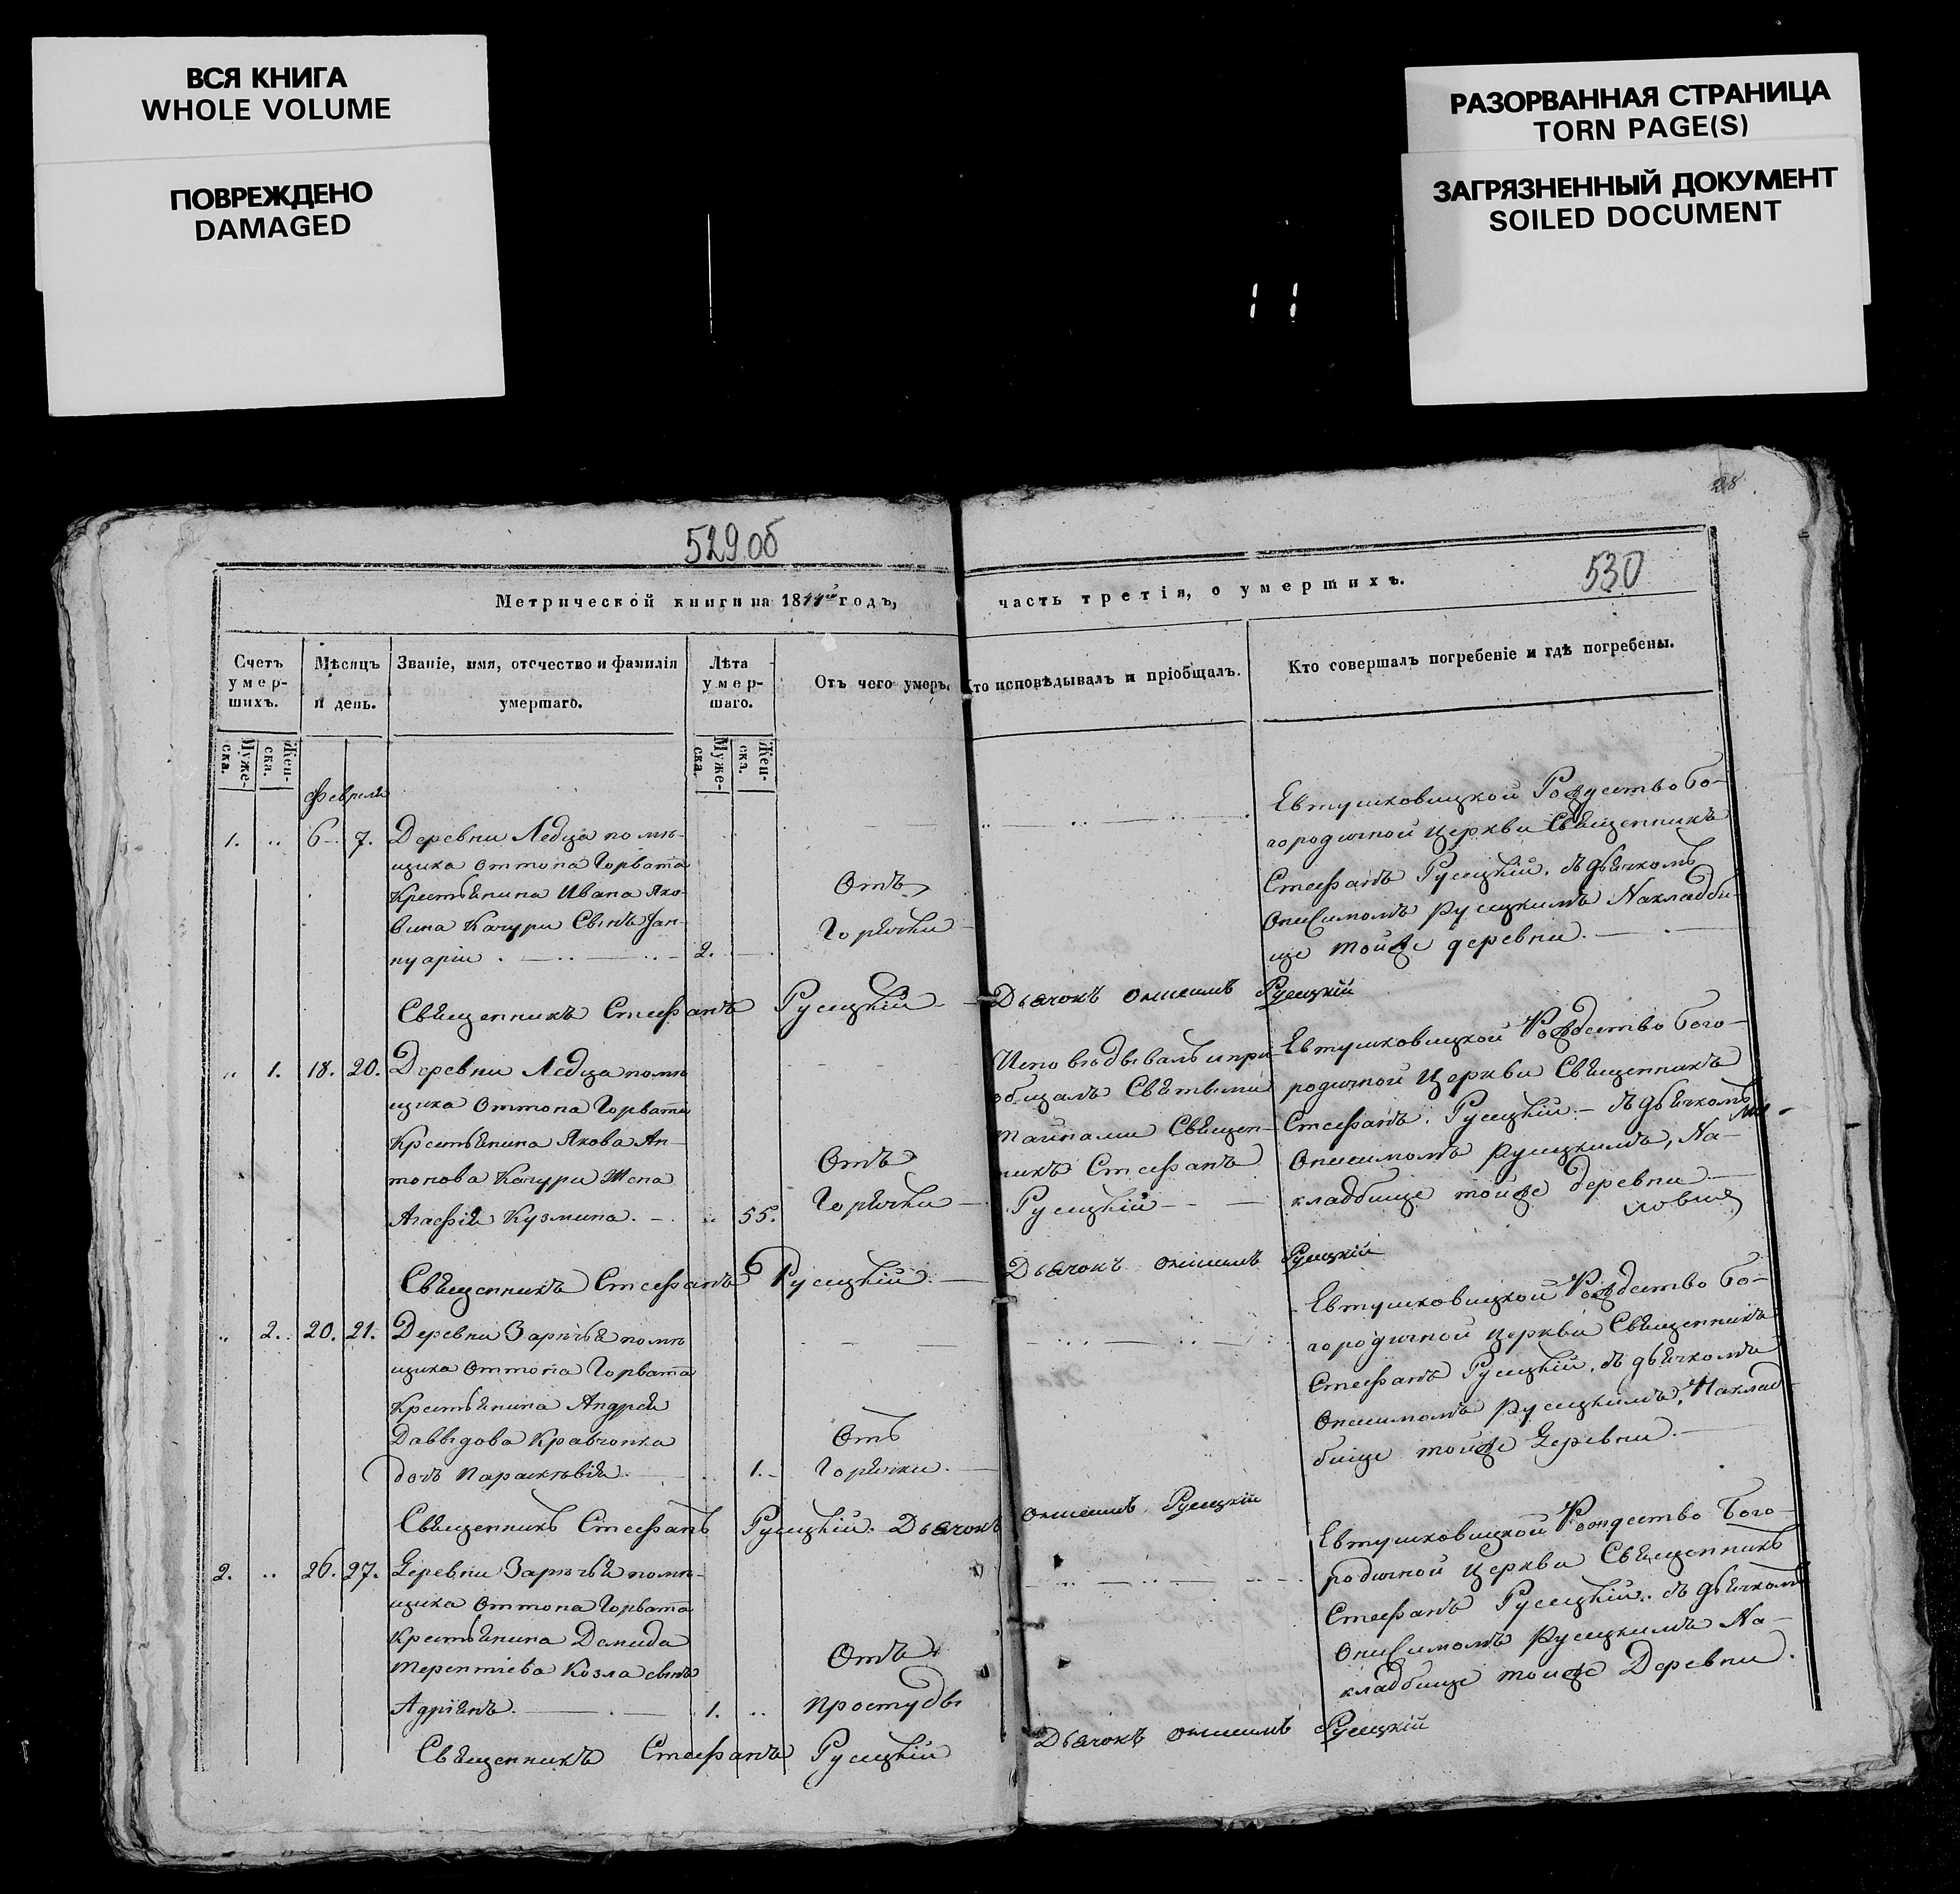 ВСЯ КНИГА
WHOLE VOLUME
ПОВРЕЖДЕНО
DAMAGED
РАЗОРВАННАЯ СТРАНИЦА
TORN PAGE(S)
ЗАГРЯЗНЕННЫЙ ДОКУМЕНТ
SOILED DOCUMENT
28
529 об
530
Метрической книги на 1844 годъ,
часть третія, о умершихъ.
Счетъ умершихъ.
Мѣсяцъ и день.
Званіе, имя, отчество и фамилія умершаго.
Лѣта умершаго.
Отъ чего умеръ.
Кто исповѣдывалъ и пріобщалъ.
Кто совершалъ погребеніе и гдѣ погребены.
Мужеска.
Женска.
Мужеска.
Женска.
Февраля
1. .. 6. 7. Деревни Ледца помѣ-
щика Оттона Горвата
Крестьянина Ивана Яко-
вина Качури Сынъ Іан-
нуарій 2.
Отъ
Горячки
Евтушковицкой Рождество Бо-
городичной Церкви Священникъ
Стефанъ Русецкій, съ дьячкомъ
Онисимомъ Русецкимъ Накладби-
ще тойже деревни.
Священникъ Стефанъ Русецкій
Дьячокъ Онисимъ Русецкій
.. 1. 18. 20. Деревни Ледца помѣ
щика Оттона Горвата
Крестьянина Якова Ан-
тонова Качури Жена
Агафія Кузмина. .. 55.
Отъ
Горячки
Исповѣдывалъ и при-
общалъ Святыми
тайнами Священ-
никъ Стефанъ
Русецкій
Евтушковицкой Рождество Бого-
родичной Церкви Священникъ
Стефанъ Русецкій съ дьячкомъ
Онисимомъ Русецкимъ, На-
кладбище тойже деревни
Священникъ Стефанъ Русецкій
Дьячокъ Онисимъ Русецкій
.. 2. 20. 21. Деревни Зарѣчья помѣ
щика Оттона Горвата
Крестьянина Андрея
Давыдова Кравчонка
дочь Параскевія 1.
Отъ
Горячки.
Евтушковицкой Рождество Бо-
городичной Церкви Священникъ
Стефанъ Русецкій, съ дьячкомъ
Онисимомъ Русецкимъ, Наклад
бище тойже Деревни.
Священникъ Стефанъ Русецкій. Дьячокъ Онисимъ Русецкій
2. .. 26. 27. Деревни Зарѣчья помѣ-
щика Оттона Горвата
Крестьянина Демида
Терентіева Козла сынъ
Адріянъ. 1. ..
Отъ
простуды
Евтушковицкой Рождество Бого-
родичной Церкви Священникъ
Стефанъ Русецкій. съ дьячкомъ
Онисимомъ Русецкимъ На-
кладбище тойже Деревни.
Священникъ Стефанъ Русецкій
Дьячокъ Онисимъ Русецкій